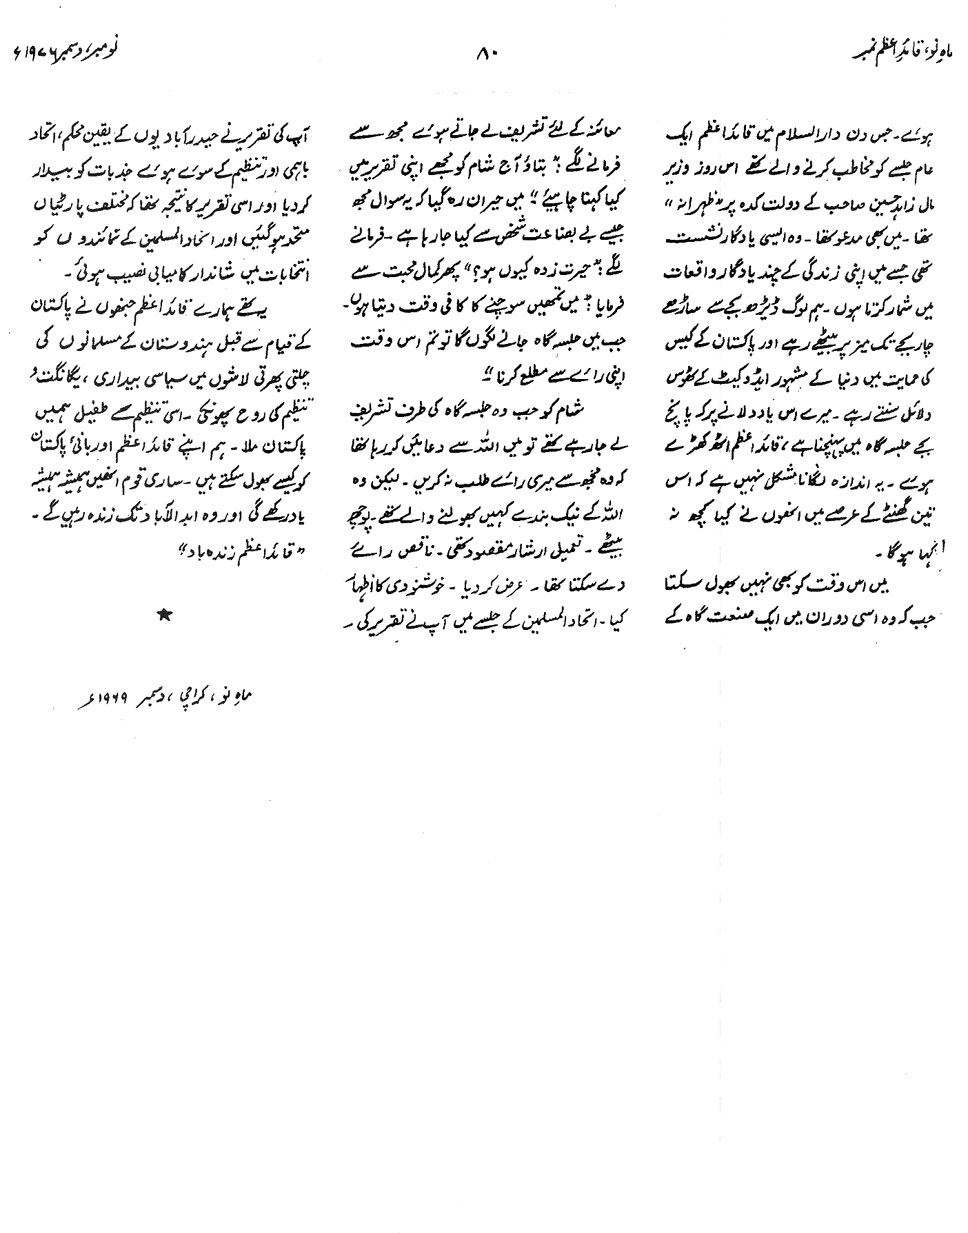 ماہِ نو، قائدِ اعظم نمبر
۸۰
نومبر، دسمبر ۱۹۷۶ء
ہوئے۔ جس دن دارالسلام میں قائداعظم ایک
عام جلسے کو مخاطب کرنے والے تھے اس روز وزیر
مال زاہد حسین صاحب کے دولت کدہ پر "ظہرانہ"
تھا۔ میں بھی مدعو تھا۔ وہ ایسی یادگار نشست
تھی جسے میں اپنی زندگی کے چند یادگار واقعات
میں شمار کرتا ہوں۔ ہم لوگ ڈیڑھ بجے سے ساڑھے
چار بجے تک میز پر بیٹھے رہے اور پاکستان کے کیس
کی حمایت میں دنیا کے مشہور ایڈوکیٹ کے ٹھوس
دلائل سنتے رہے۔ میرے اس یاد دلانے پر کہ پانچ
بجے جلسہ گاہ میں پہنچنا ہے، قائداعظم اٹھ کھڑے
ہوئے۔ یہ اندازہ لگانا مشکل نہیں ہے کہ اس
تین گھنٹے کے عرصے میں انھوں نے کیا کچھ نہ
کہا ہوگا۔
میں اس وقت کو بھی نہیں بھول سکتا
جب کہ وہ اسی دوران میں ایک صنعت گاہ کے
معائنہ کے لئے تشریف لے جاتے ہوئے مجھ سے
فرمانے لگے: "بتاؤ آج شام کو مجھے اپنی تقریر میں
کیا کہنا چاہیے؟" میں حیران رہ گیا کہ یہ سوال مجھ
جیسے بے بضاعت شخص سے کیا جا رہا ہے۔ فرمانے
لگے: "حیرت زدہ کیوں ہو؟" پھر کمال محبت سے
فرمایا: "میں تمھیں سوچنے کا کافی وقت دیتا ہوں۔
جب میں جلسہ گاہ جانے لگوں گا تو تم اس وقت
اپنی رائے سے مطلع کرنا۔"
شام کو جب وہ جلسہ گاہ کی طرف تشریف
لے جا رہے تھے تو میں اللہ سے دعائیں کر رہا تھا
کہ وہ مجھ سے میری رائے طلب نہ کریں۔ لیکن وہ
اللہ کے نیک بندے کہیں بھولنے والے تھے۔ پوچھ
بیٹھے۔ تعمیل ارشاد مقصود تھی۔ ناقص رائے
دے سکتا تھا۔ عرض کر دیا۔ خوشنودی کا اظہار
کیا۔ اتحاد المسلمین کے جلسے میں آپ نے تقریر کی۔
آپ کی تقریر نے حیدرآبادیوں کے یقین محکم، اتحاد
باہمی اور تنظیم کے سوئے ہوئے جذبات کو بیدار
کر دیا اور اسی تقریر کا نتیجہ تھا کہ مختلف پارٹیاں
متحد ہو گئیں اور اتحاد المسلمین کے نمائندوں کو
انتخابات میں شاندار کامیابی نصیب ہوئی۔
یہ تھے ہمارے قائداعظم جنھوں نے پاکستان
کے قیام سے قبل ہندوستان کے مسلمانوں کی
چلتی پھرتی لاشوں میں سیاسی بیداری، یگانگت و
تنظیم کی روح پھونکی۔ اسی تنظیم کے طفیل ہمیں
پاکستان ملا۔ ہم اپنے قائداعظم اور بانئ پاکستان
کو کیسے بھول سکتے ہیں۔ ساری قوم انھیں ہمیشہ ہمیشہ
یاد رکھے گی اور وہ ابدالآباد تک زندہ رہیں گے۔
"قائداعظم زندہ باد"
ماہِ نو، کراچی، دسمبر ۱۹۶۹ء